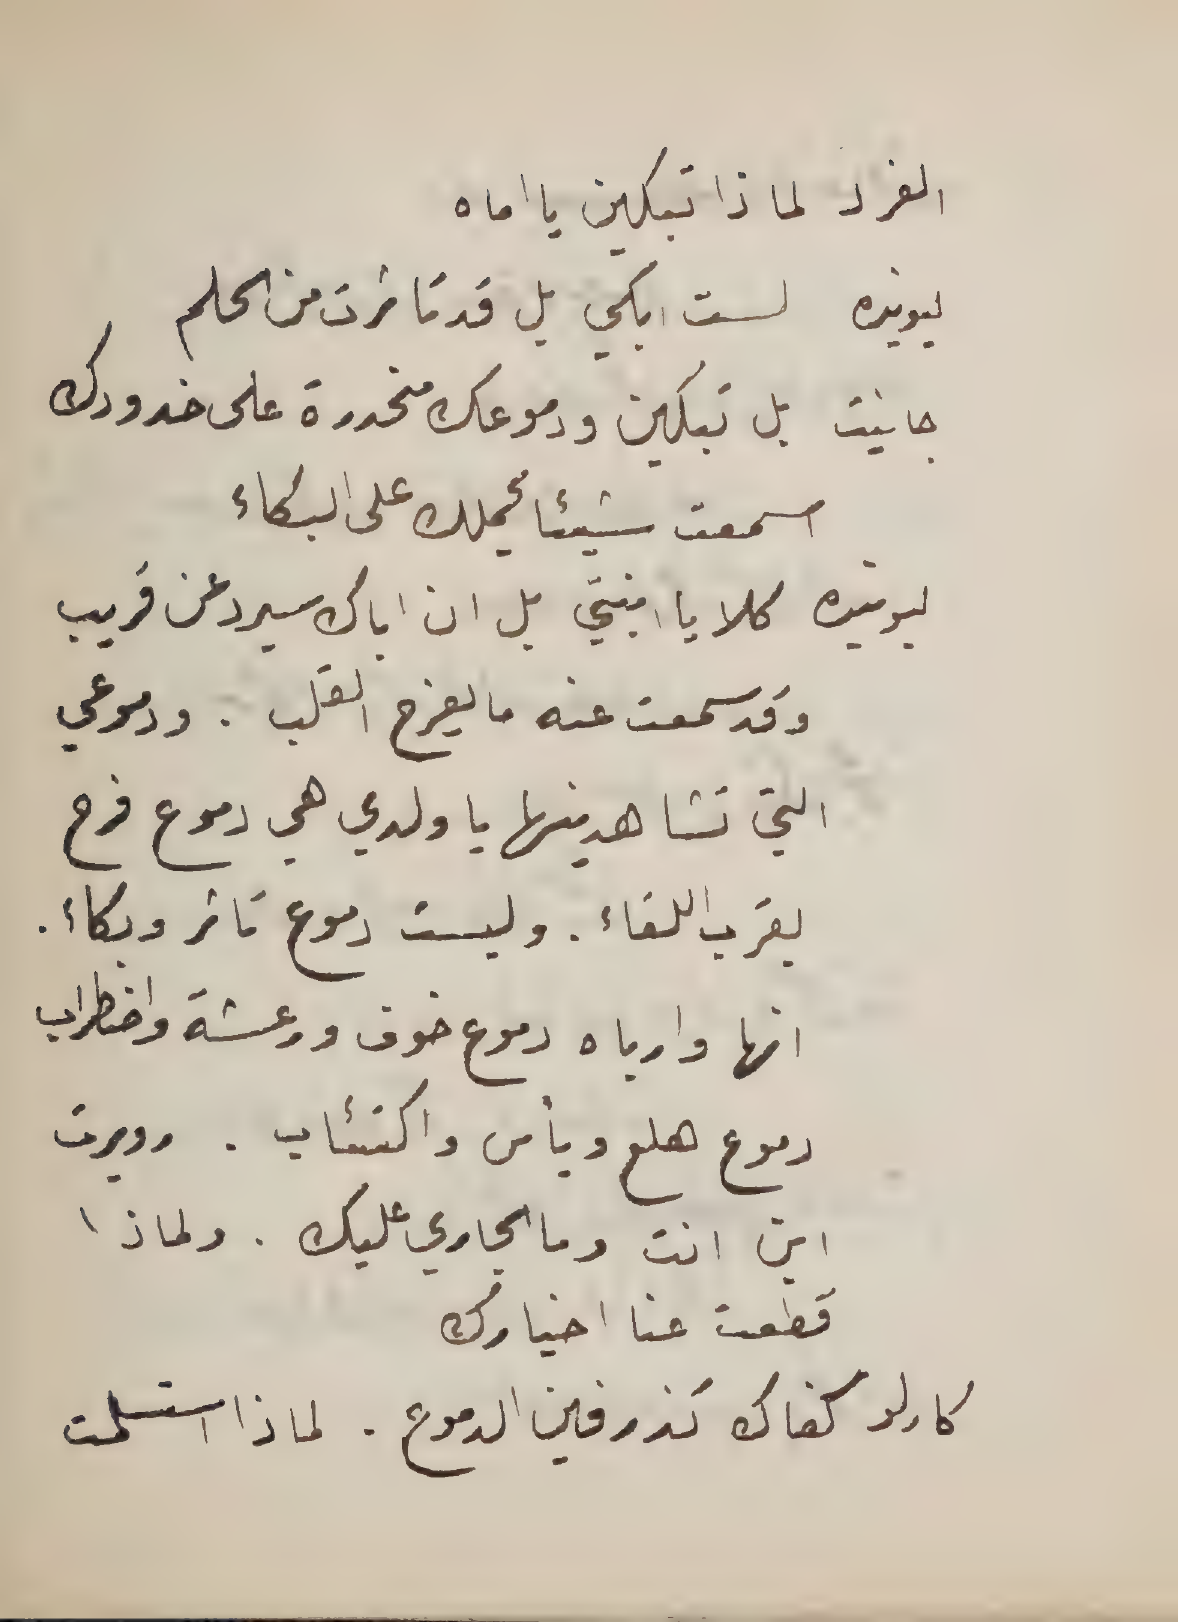 الفرد لماذا تبكين يا اماه
ليونيده لست ابكي بل قد تاثرت من الحلم
جانيت بل تبكين ودموعك منحدرة على خدودك
اسمعت شيئا يحملك على البكاء
ليونيده كلا يا ابنتي بل ان اباك سيرد عن قريب
وقد سمعت عنه ما يفرح القلب . ودموعي
التي تشاهدينها يا ولدي هي دموع فرح
بقرب اللقاء . وليست دموع تاثر وبكاء .
انها وارباه دموع خوف ورعشة واضطراب
دموع هلع ويأس واكتئاب . روبرت
اين انت وما الجاري عليك . ولماذا
قطعت عنا اخبارك
كارلو كفاك تذرفين الدموع . لماذا استسلمت